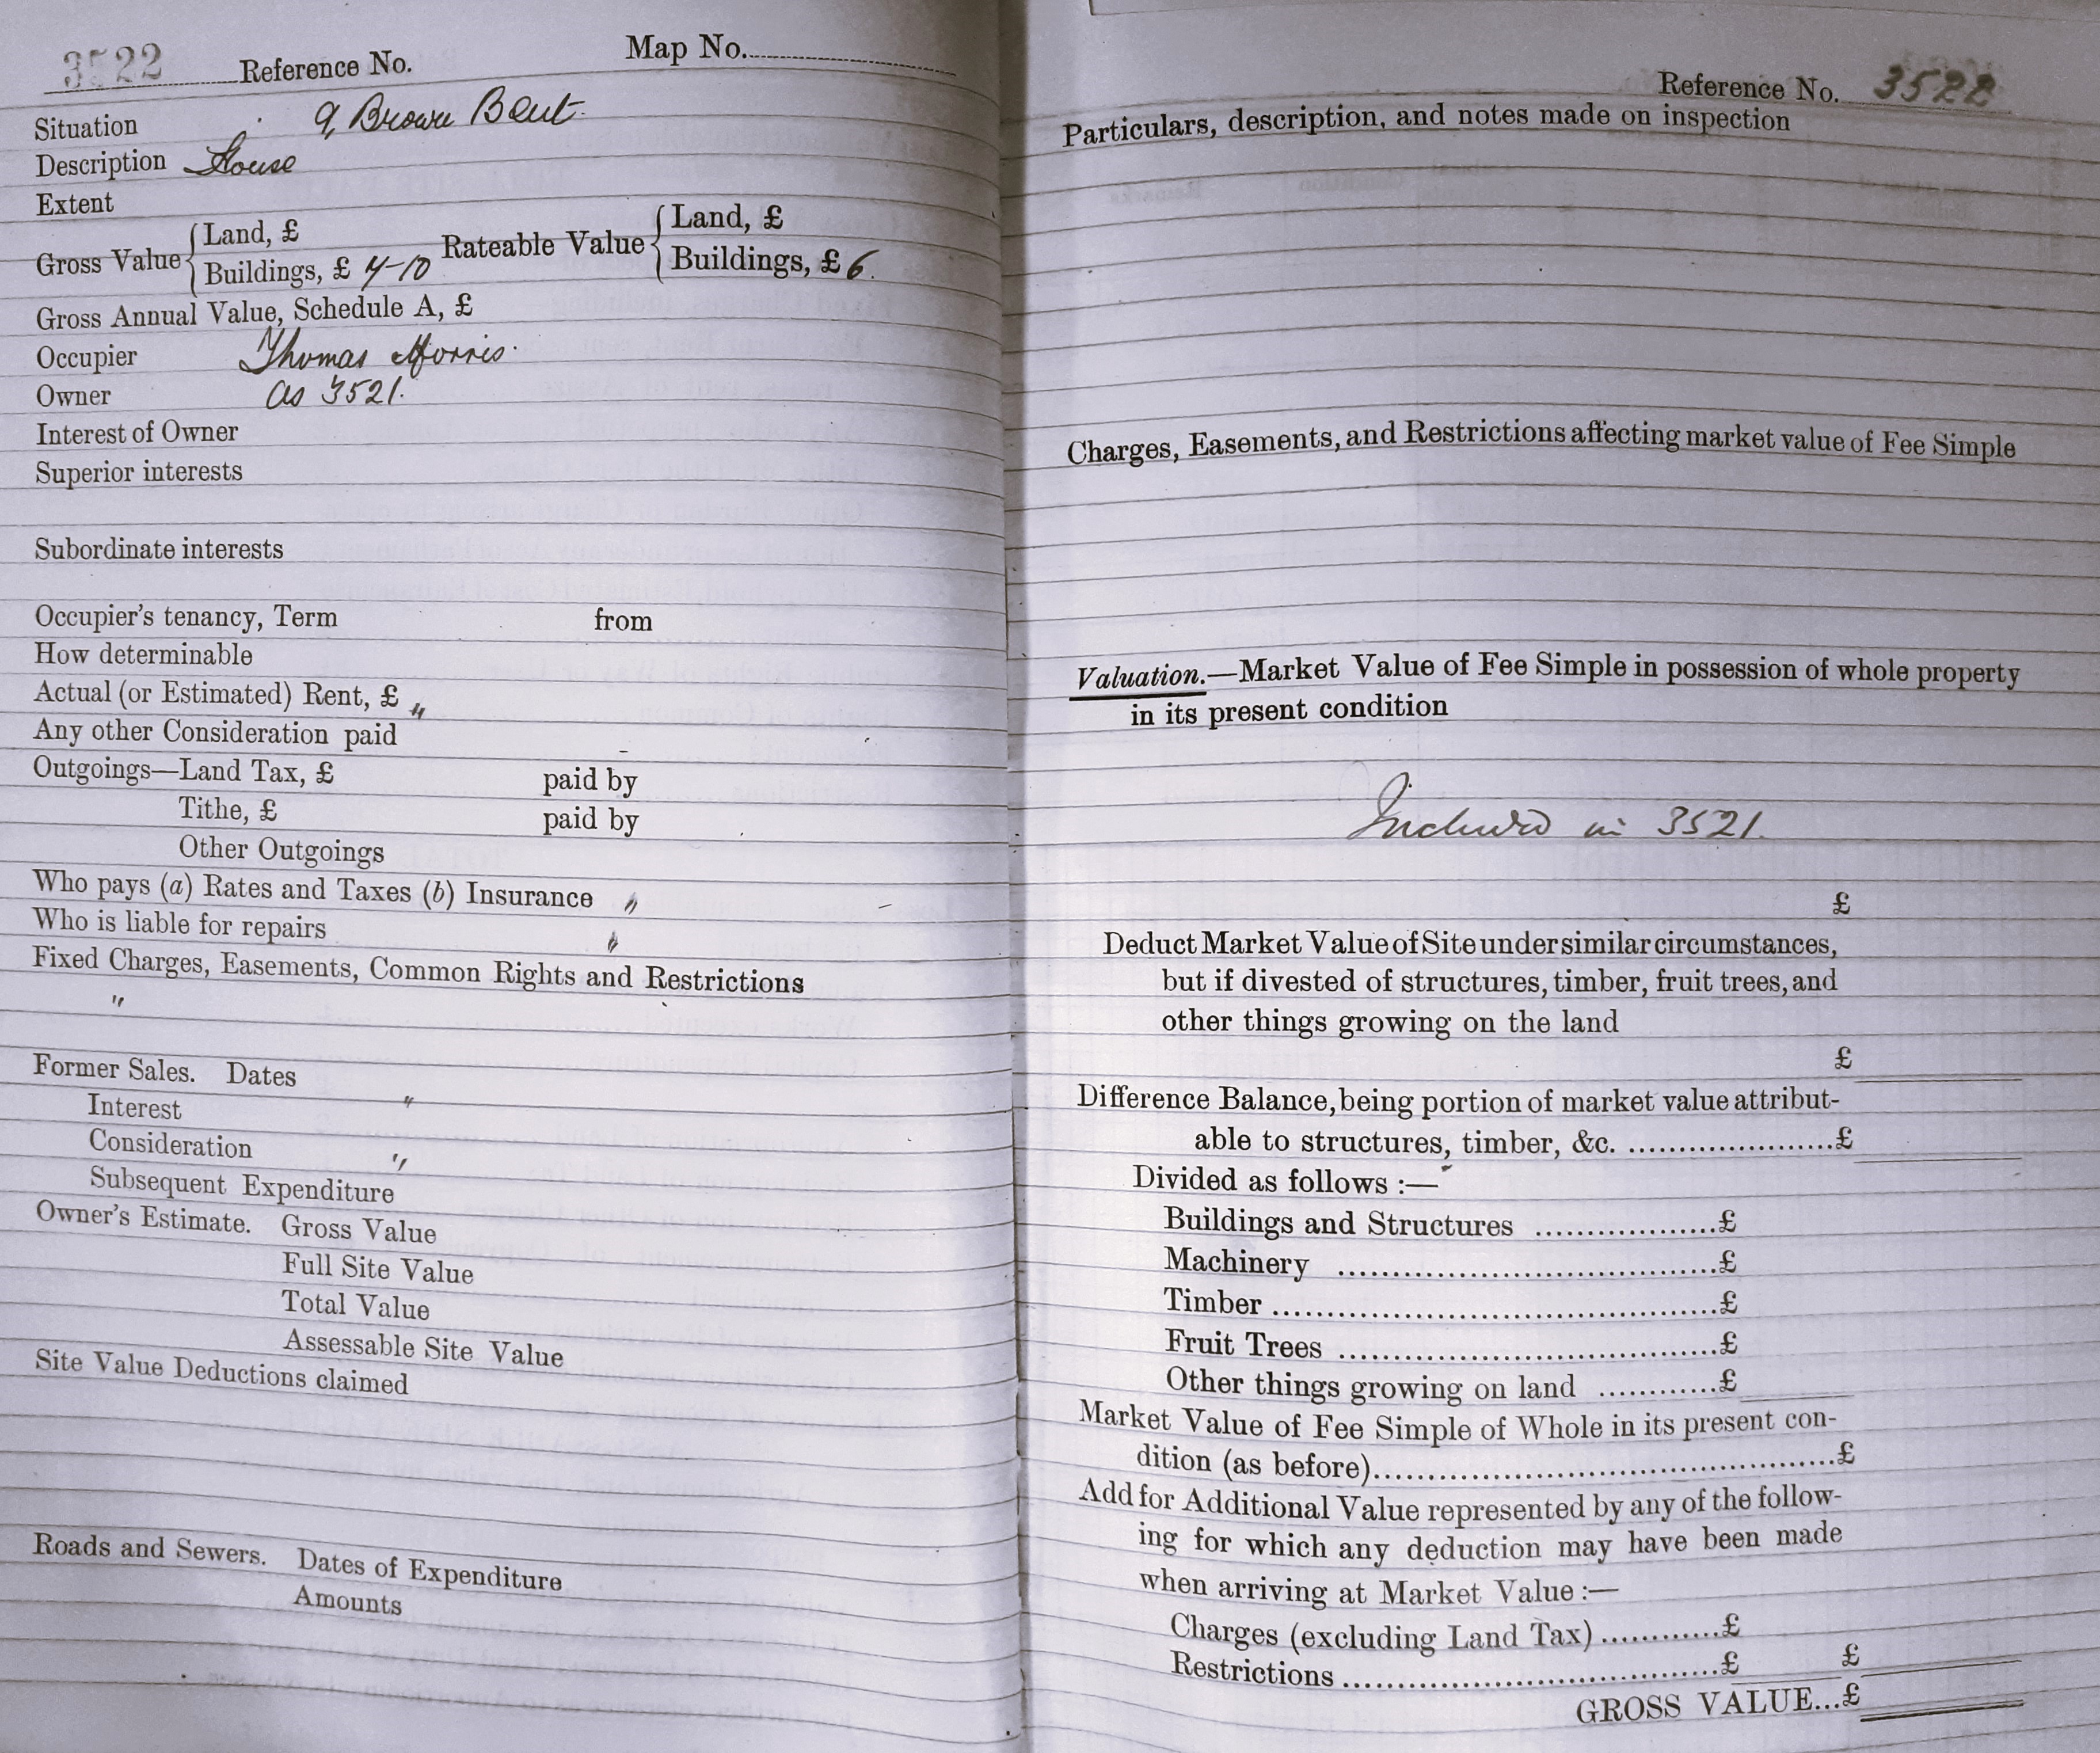 3522 Reference No. Map No.
Situation 9, Brown Bent.
Description House
Extent
Gross Value { Land, £
Buildings, £ 7-10 Rateable Value { Land, £
Buildings, £ 6.
Gross Annual Value, Schedule A, £
Occupier Thomas Morris.
Owner as 3521.
Interest of Owner
Superior interests
Subordinate interests
Occupier's tenancy, Term from
How determinable
Actual (or Estimated) Rent, £ "
Any other Consideration paid
Outgoings—Land Tax, £ paid by
Tithe, £ paid by
Other Outgoings
Who pays (a) Rates and Taxes (b) Insurance "
Who is liable for repairs "
Fixed Charges, Easements, Common Rights and Restrictions
"
Former Sales. Dates
Interest "
Consideration "
Subsequent Expenditure
Owner's Estimate. Gross Value
Full Site Value
Total Value
Assessable Site Value
Site Value Deductions claimed
Roads and Sewers. Dates of Expenditure
Amounts
Reference No. 3522
Particulars, description, and notes made on inspection
Charges, Easements, and Restrictions affecting market value of Fee Simple
Valuation.—Market Value of Fee Simple in possession of whole property
in its present condition
Included in 3521.
£
Deduct Market Value of Site under similar circumstances,
but if divested of structures, timber, fruit trees, and
other things growing on the land
£
Difference Balance, being portion of market value attribut-
able to structures, timber, &c. .....................£
Divided as follows :—
Buildings and Structures ...................£
Machinery ........................................£
Timber ...............................................£
Fruit Trees ........................................£
Other things growing on land ............£
Market Value of Fee Simple of Whole in its present con-
dition (as before)..................................................£
Add for Additional Value represented by any of the follow-
ing for which any deduction may have been made
when arriving at Market Value :—
Charges (excluding Land Tax) ............£
Restrictions .......................................£ £
GROSS VALUE...£